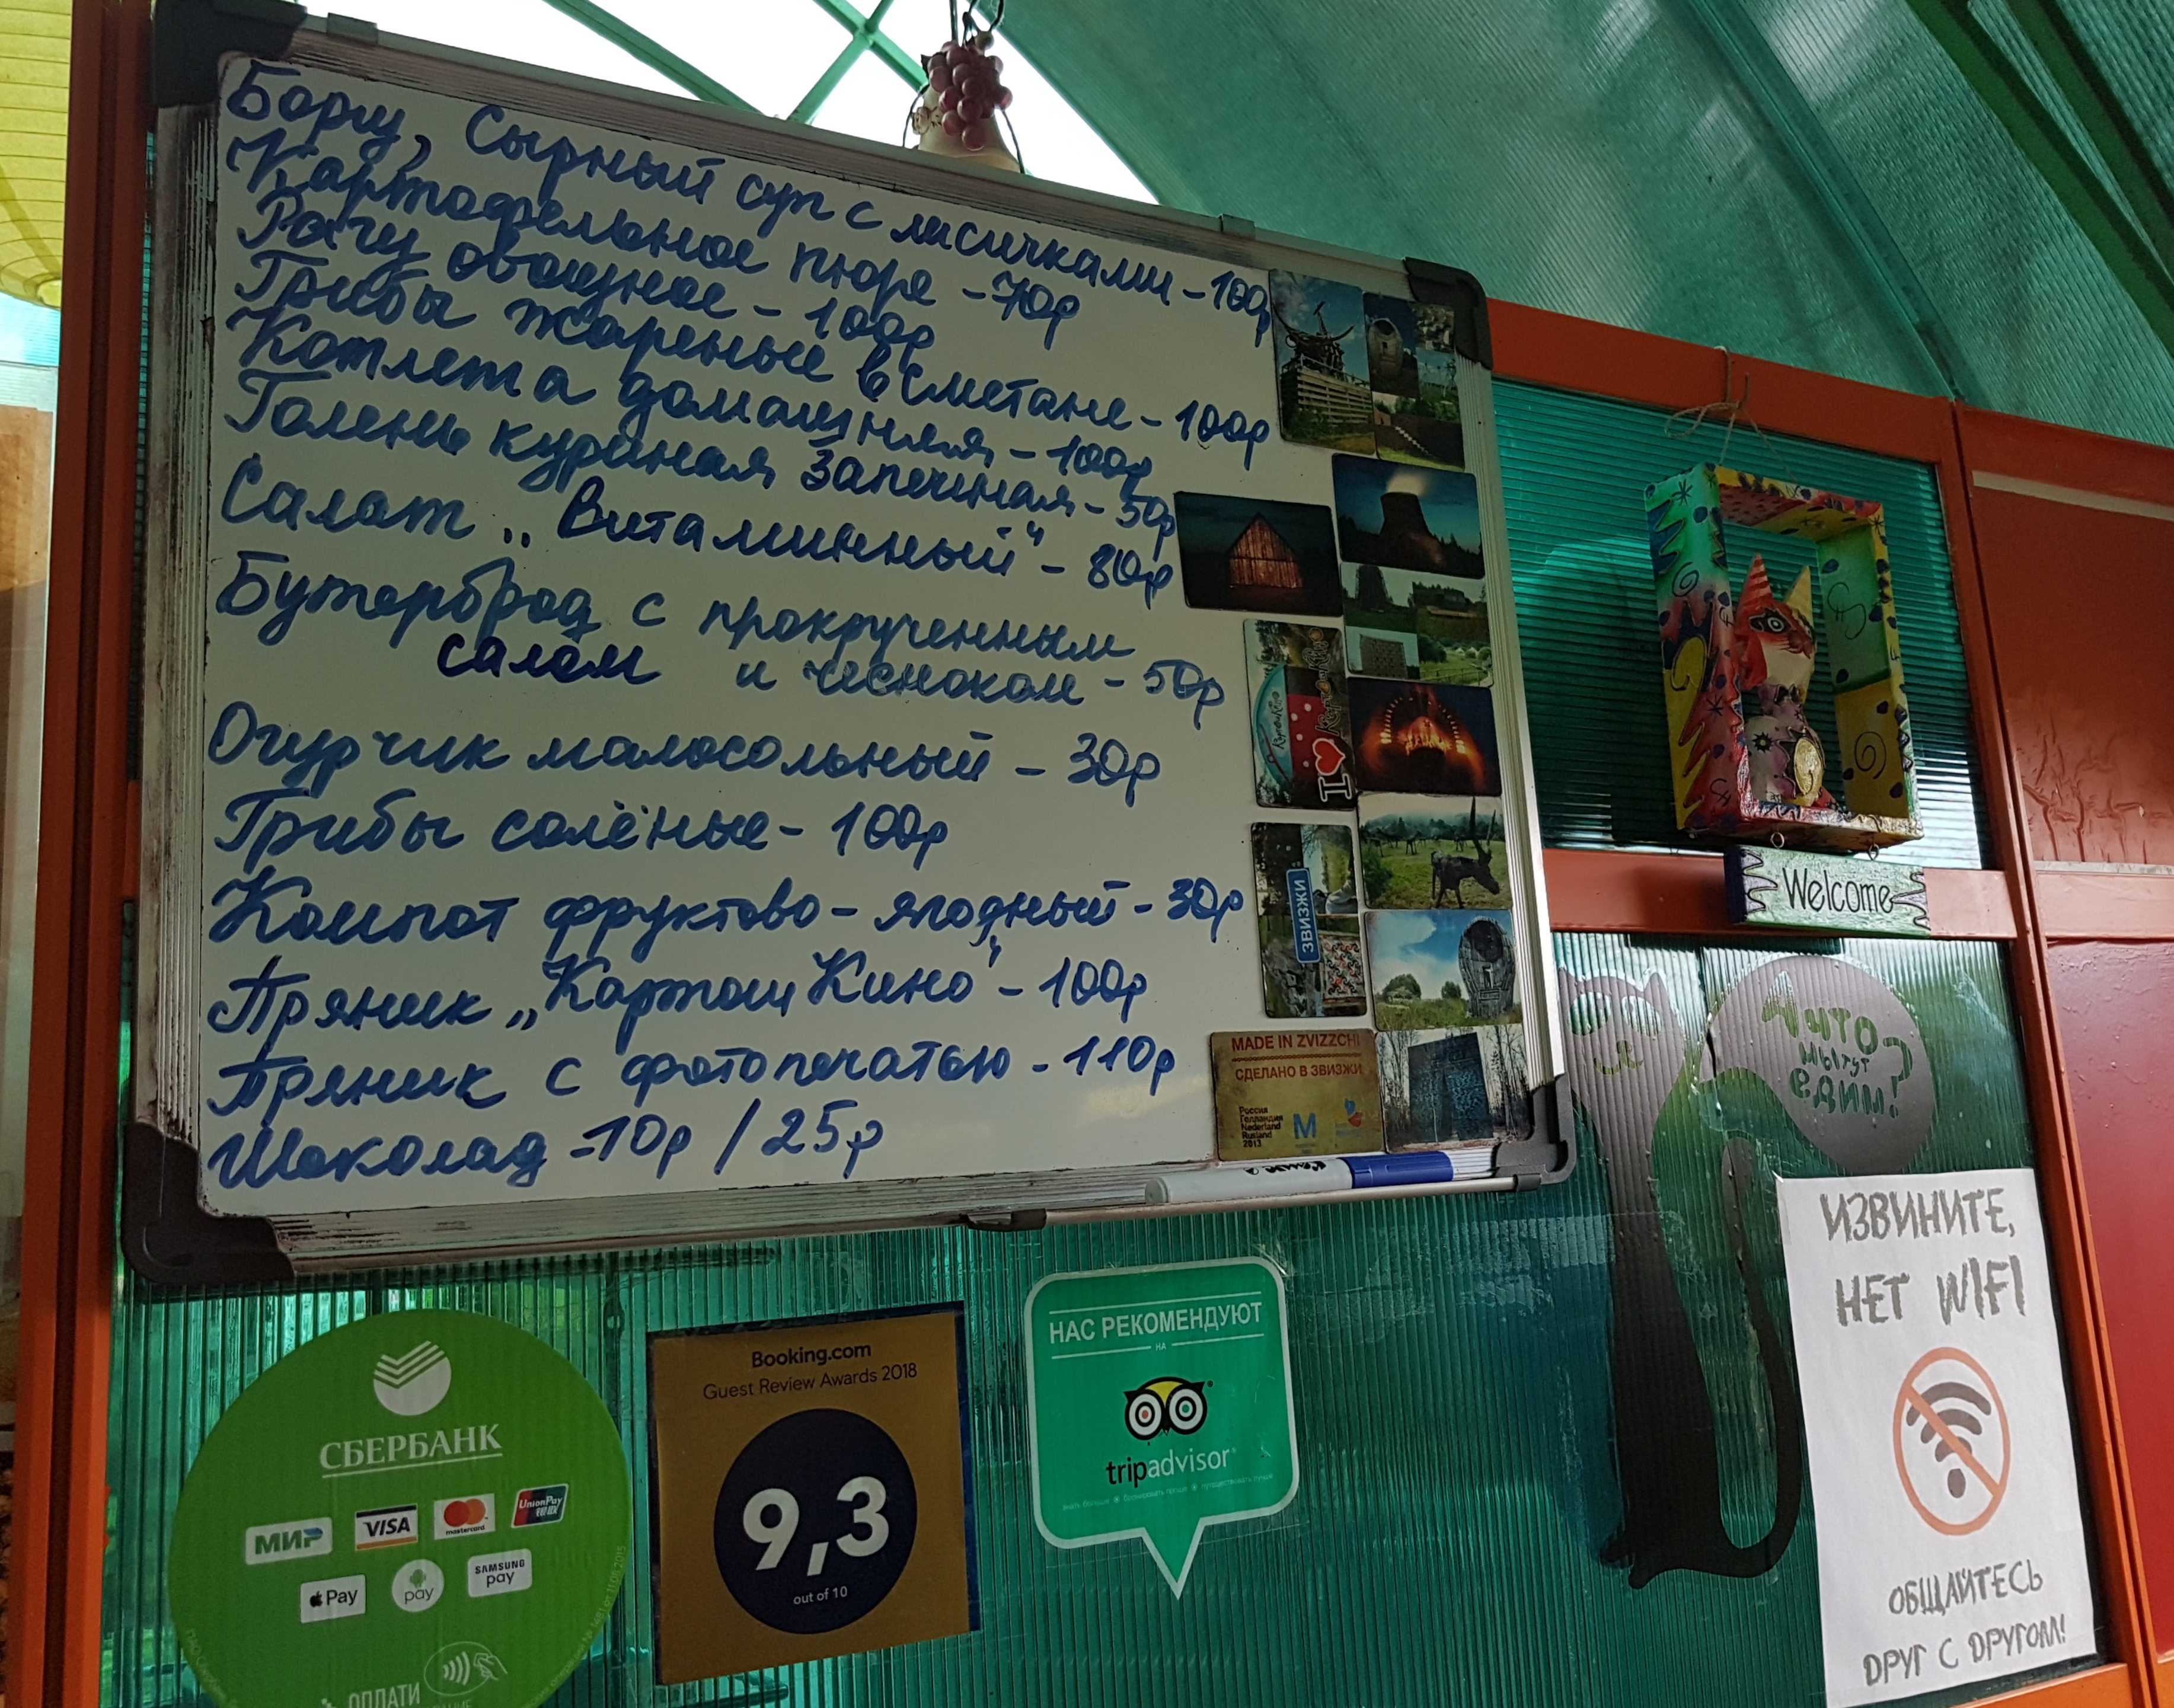 Борщ, Сырный суп с лисичками - 100р
Картофельное пюре - 70р
Рагу овощное - 100р
Грибы жареные в сметане - 100р
Котлета домашняя - 100р
Голень куриная запечёная - 50р
Салат „Витаминный" - 80р
Бутерброд с прокрученным
салом и чесноком - 50р
Огурчик малосольный - 30р
Грибы солёные - 100р
Компот фруктово - ягодный - 30р
Пряник „Картош Кино" - 100р
Пряник с фотопечатью - 110р
Шоколад - 10р / 25р
ЗВИЗЖИ
MADE IN ZVIZZCHI
СДЕЛАНО В ЗВИЗЖИ
Россия
Голландия
Nederland
Rusland
2013
M
Welcome
А ЧТО
МЫ ТУТ
ЕДИМ?
ИЗВИНИТЕ,
НЕТ WIFI
ОБЩАЙТЕСЬ
ДРУГ С ДРУГОМ!
СБЕРБАНК
МИР VISA mastercard UnionPay 银联
Pay pay SAMSUNG pay
ОПЛАТИ
Booking.com
Guest Review Awards 2018
9,3
out of 10
НАС РЕКОМЕНДУЮТ
НА
tripadvisor